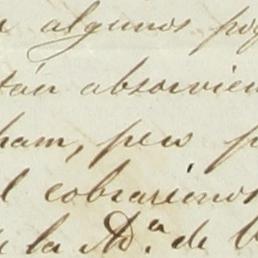 algunos
tán absorvien
ham, pero p
l cobraremos
la Ad.ª de